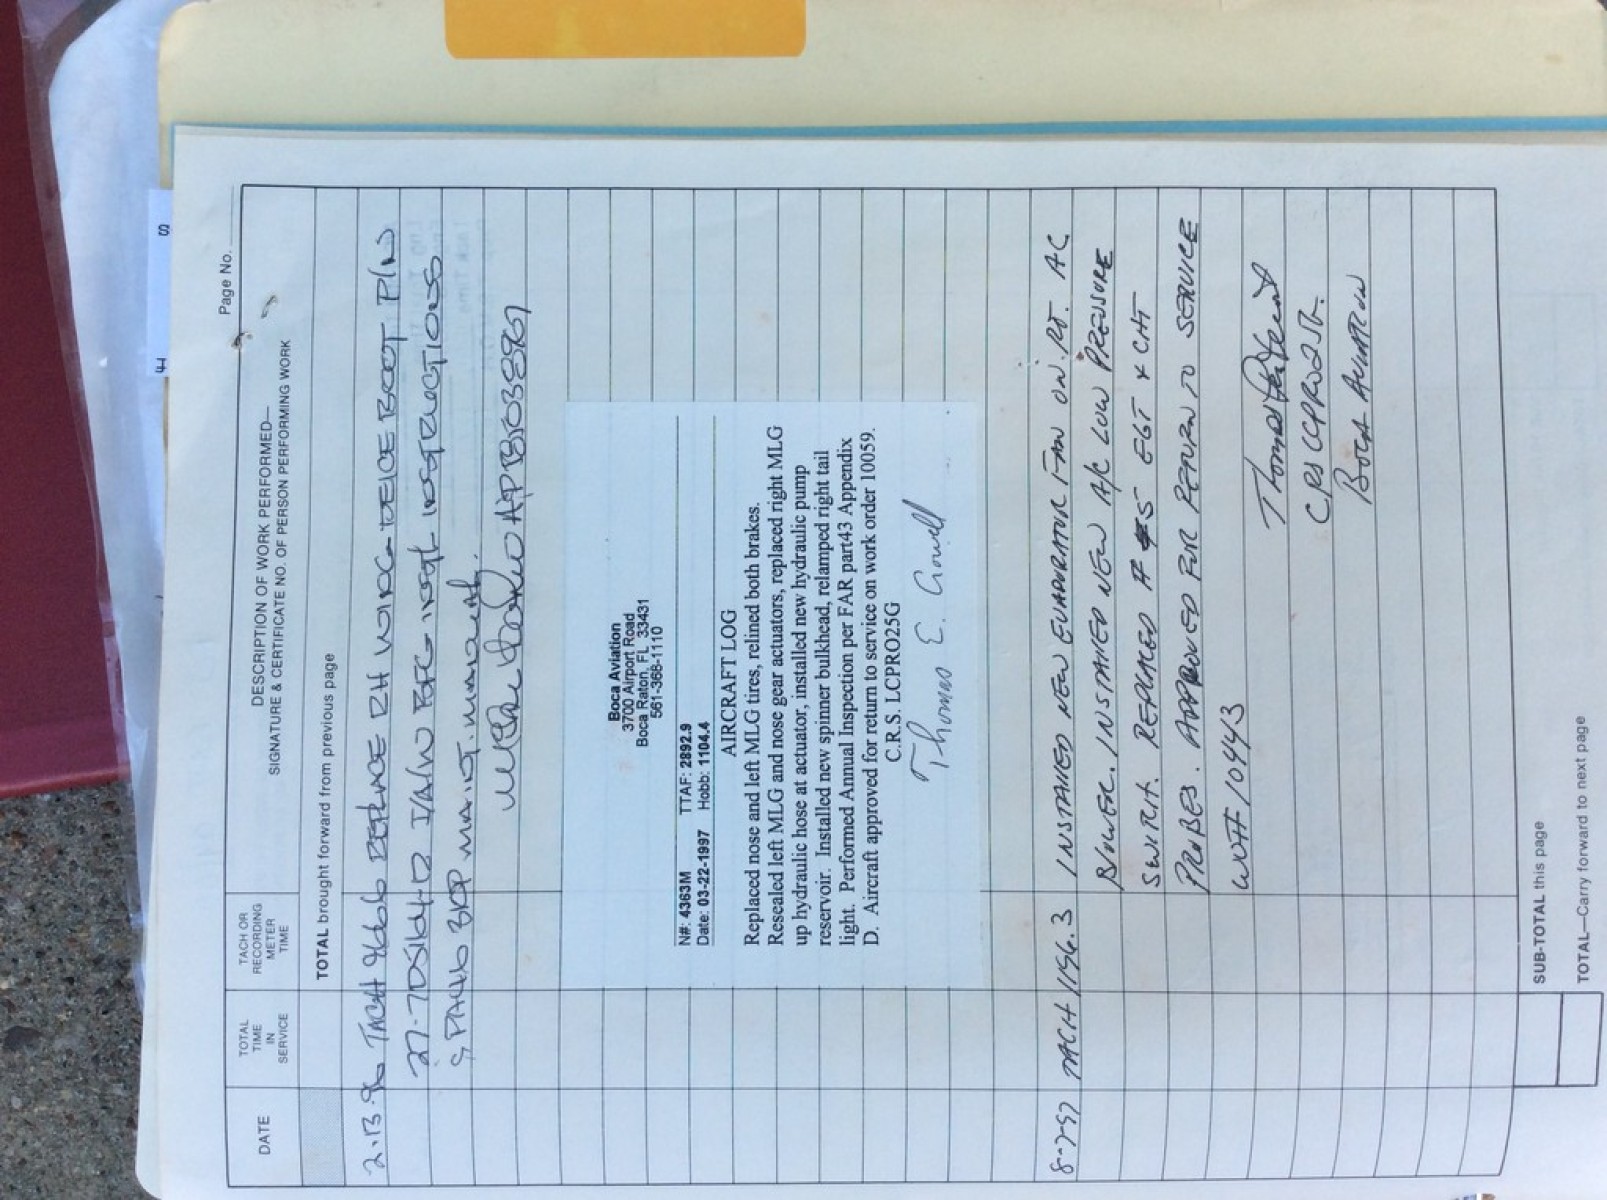 Page No.
DESCRIPTION OF WORK PERFORMED—
SIGNATURE & CERTIFICATE NO. OF PERSON PERFORMING WORK
DATE
TOTAL TIME IN SERVICE
TACH OR RECORDING METER TIME
TOTAL brought forward from previous page
2-13-96 TACH REPLACE RH WING DEICE BOOT P/N
I/A/W BFG INST. INSTRUCTIONS
& MAINT. MANUAL.
Boca Aviation
3700 Airport Road
Boca Raton, FL 33431
561-368-1110
N#: 4363M TTAF: 2892.9
Date: 03-22-1997 Hobb: 1104.4
AIRCRAFT LOG
Replaced nose and left MLG tires, relined both brakes.
Resealed left MLG and nose gear actuators, replaced right MLG
up hydraulic hose at actuator, installed new hydraulic pump
reservoir. Installed new spinner bulkhead, relamped right tail
light. Performed Annual Inspection per FAR part43 Appendix
D. Aircraft approved for return to service on work order 10059.
C.R.S. LCPRO25G
Thomas E. Crowell
8-7-97 TACH 1156.3 INSTALLED NEW EVAPORATOR FAN ON RT. AC
BLOWER. INSTALLED NEW A/C LOW PRESSURE
SWITCH. REPLACED # 5 EGT & CHT
PROBES. APPROVED FOR RETURN TO SERVICE
WO# 10443
Thomas
CRS
BOCA AVIATION
SUB-TOTAL this page
TOTAL—Carry forward to next page